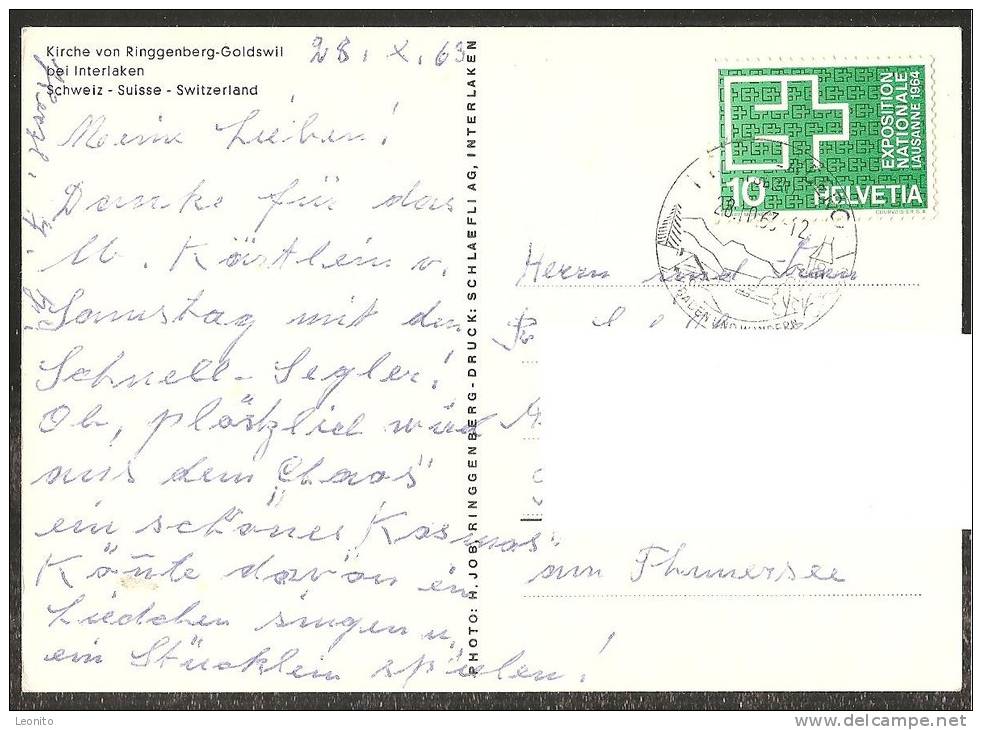 Kirche von Ringgenberg-Goldswil
bei Interlaken
Schweiz - Suisse - Switzerland
28. X. 63
Meine Lieben!
Danke für das
M. Kärtlein v.
Samstag mit dem
Schnell-Segler!
Ob, plötzlich wird
aus dem "Chaos"
ein schönes "Kosmos"
Könnte davon ein
Liedchen singen u.
ein Stücklein spielen!
PHOTO: H. JOB, RINGGENBERG - DRUCK: SCHLAEFLI AG, INTERLAKEN
EXPOSITION
NATIONALE
LAUSANNE 1964
10 HELVETIA
COURVOISIER S.A.
28.10.63-12
UND WANDERN
Herrn und Frau
am Thunersee
Leonito
www.delcampe.net